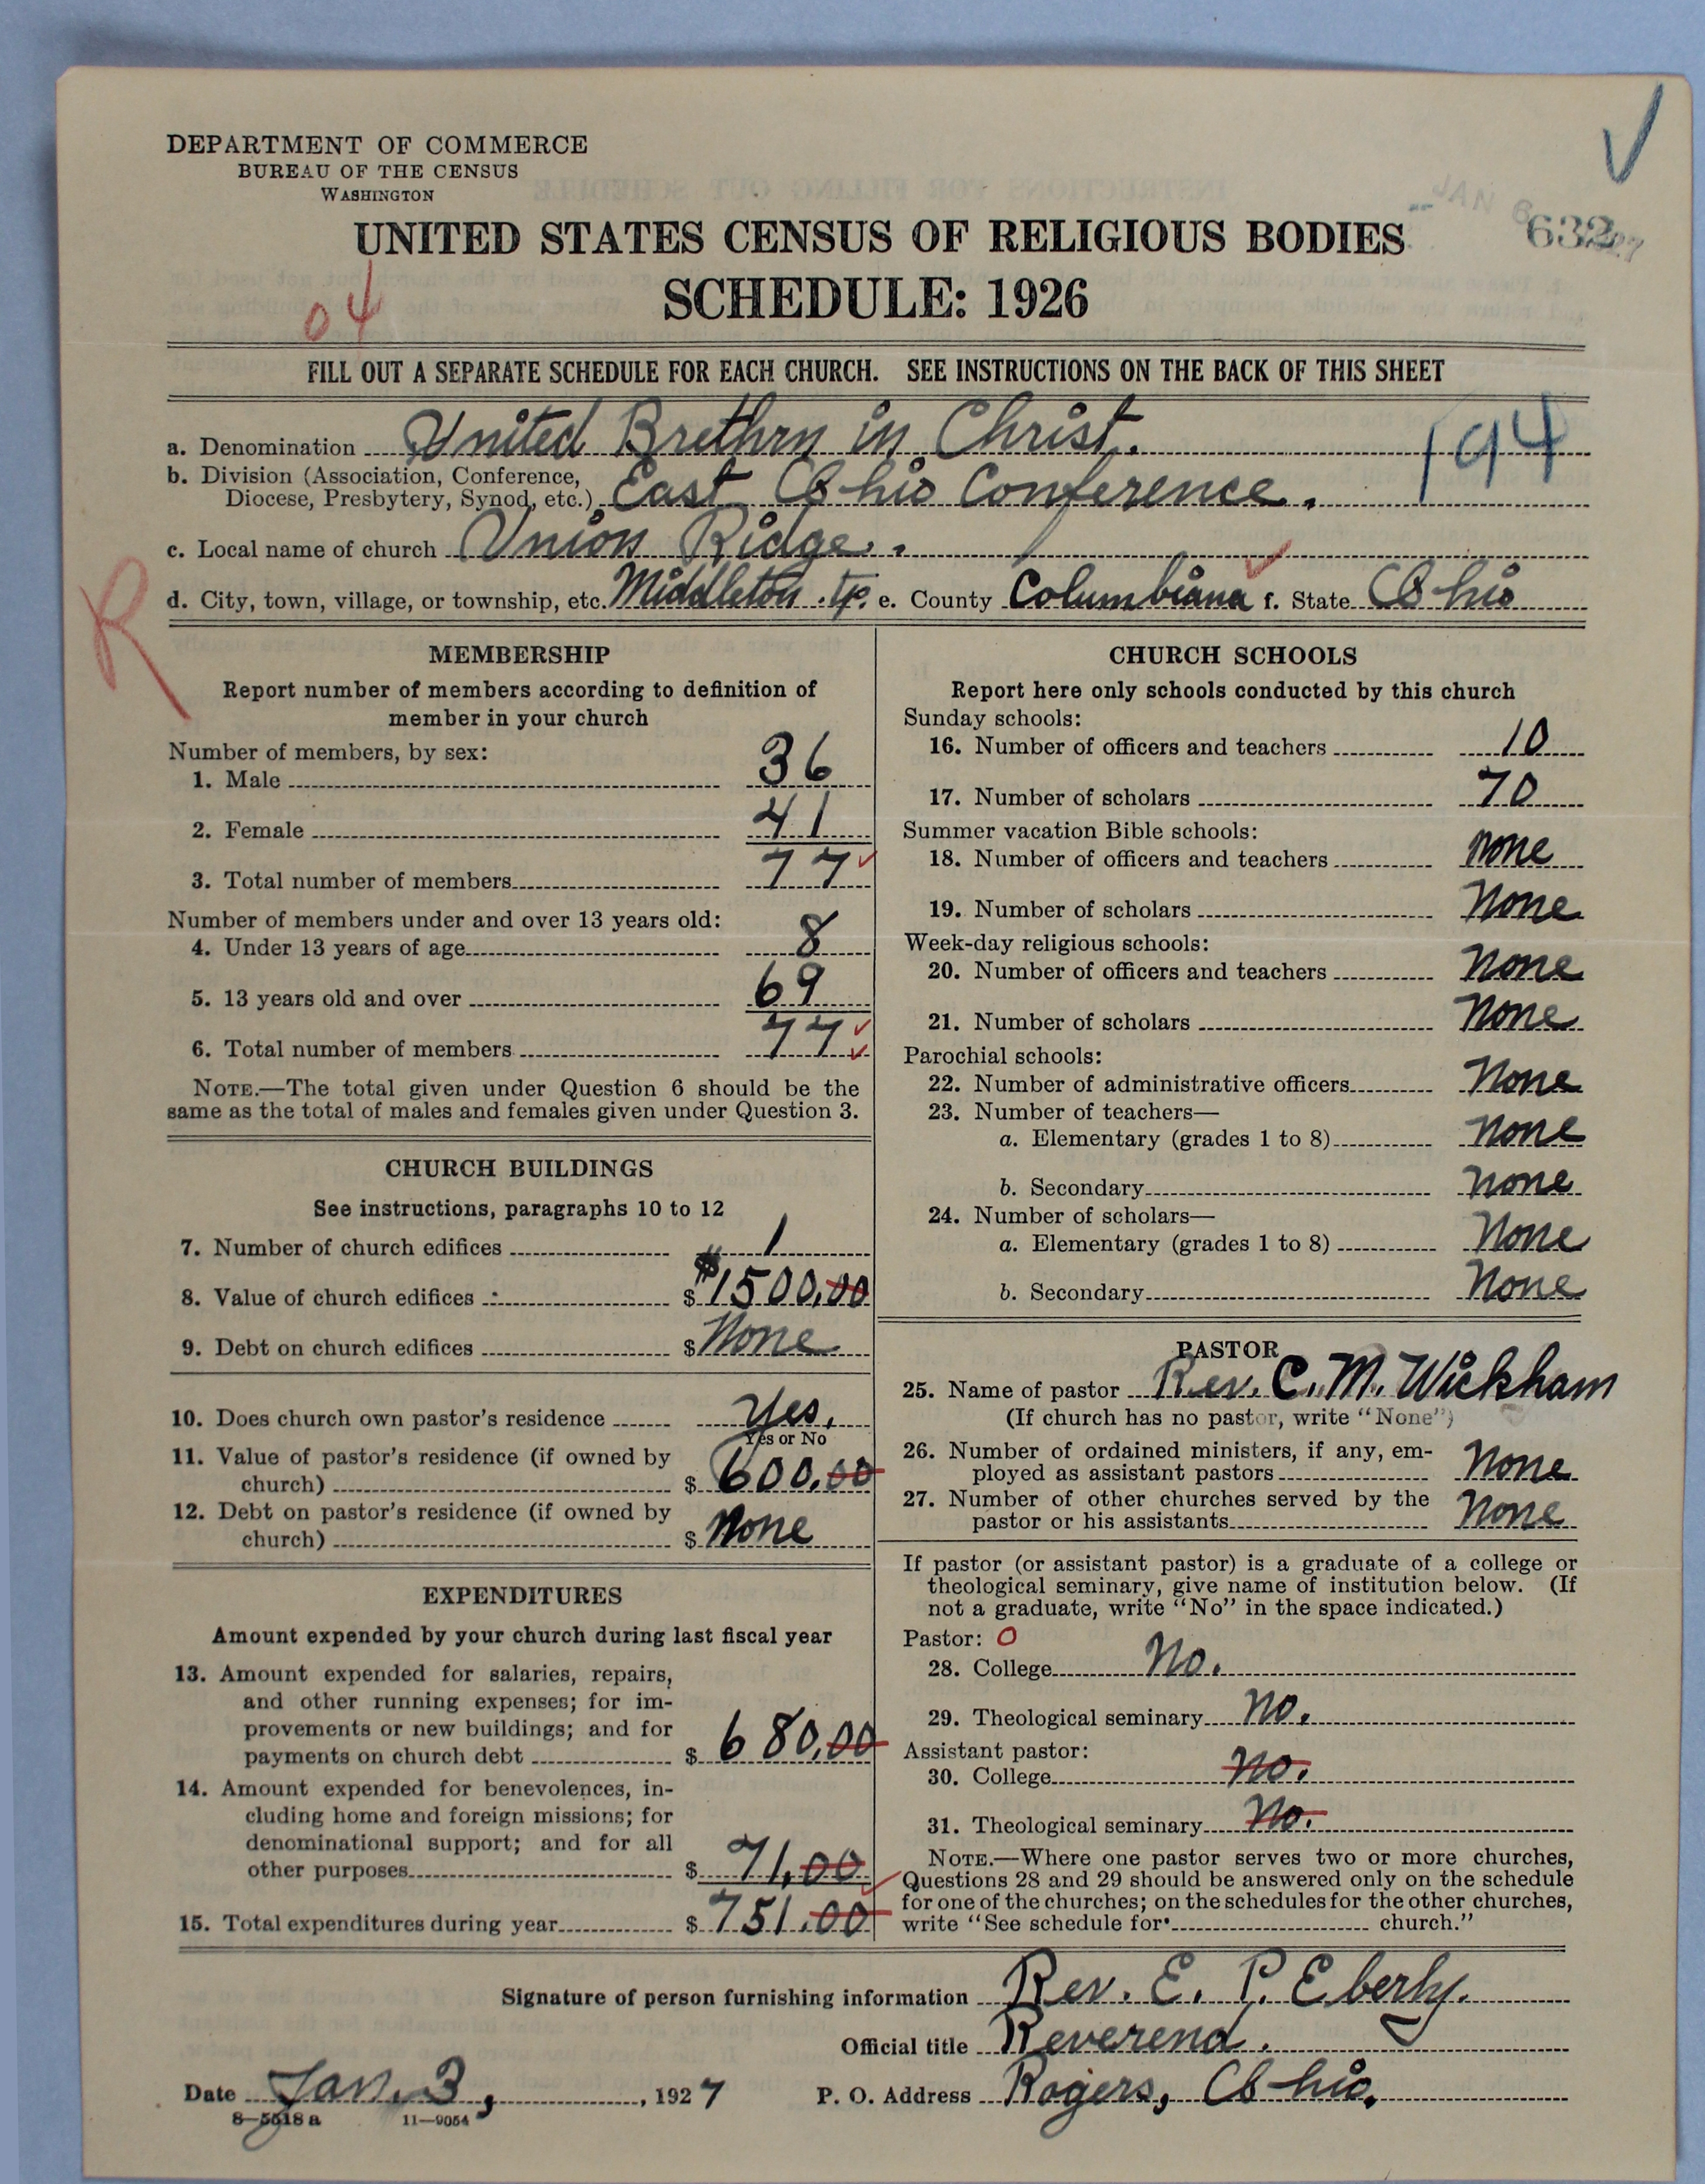 DEPARTMENT OF COMMERCE
BUREAU OF THE CENSUS
WASHINGTON
UNITED STATES CENSUS OF RELIGIOUS BODIES
632
SCHEDULE: 1926
04
FILL OUT A SEPARATE SCHEDULE FOR EACH CHURCH. SEE INSTRUCTIONS ON THE BACK OF THIS SHEET
a. Denomination United Brethrn in Christ. 194
b. Division (Association, Conference,
Diocese, Presbytery, Synod, etc.) East Ohio Conference.
c. Local name of church Union Ridge.
R
d. City, town, village, or township, etc. Middleton tp. e. County Columbiana f. State Ohio
MEMBERSHIP
Report number of members according to definition of
member in your church
Number of members, by sex:
1. Male 36
2. Female 41
3. Total number of members 77
Number of members under and over 13 years old:
4. Under 13 years of age 8
5. 13 years old and over 69
6. Total number of members 77
NOTE.—The total given under Question 6 should be the
same as the total of males and females given under Question 3.
CHURCH BUILDINGS
See instructions, paragraphs 10 to 12
7. Number of church edifices 1
8. Value of church edifices $ $1500.00
9. Debt on church edifices $ None
10. Does church own pastor's residence Yes.
Yes or No
11. Value of pastor's residence (if owned by
church) $ 600.00
12. Debt on pastor's residence (if owned by
church) $ None
EXPENDITURES
Amount expended by your church during last fiscal year
13. Amount expended for salaries, repairs,
and other running expenses; for im-
provements or new buildings; and for
payments on church debt $ 680.00
14. Amount expended for benevolences, in-
cluding home and foreign missions; for
denominational support; and for all
other purposes $ 71.00
15. Total expenditures during year $ 751.00
CHURCH SCHOOLS
Report here only schools conducted by this church
Sunday schools:
16. Number of officers and teachers 10
17. Number of scholars 70
Summer vacation Bible schools:
18. Number of officers and teachers none
19. Number of scholars None
Week-day religious schools:
20. Number of officers and teachers None
21. Number of scholars None
Parochial schools:
22. Number of administrative officers None
23. Number of teachers—
a. Elementary (grades 1 to 8) None
b. Secondary None
24. Number of scholars—
a. Elementary (grades 1 to 8) None
b. Secondary None
PASTOR
25. Name of pastor Rev. C. M. Wickham
(If church has no pastor, write "None")
26. Number of ordained ministers, if any, em-
ployed as assistant pastors None
27. Number of other churches served by the
pastor or his assistants None
If pastor (or assistant pastor) is a graduate of a college or
theological seminary, give name of institution below. (If
not a graduate, write "No" in the space indicated.)
Pastor: O
28. College No.
29. Theological seminary No.
Assistant pastor:
30. College No.
31. Theological seminary No.
NOTE.—Where one pastor serves two or more churches,
Questions 28 and 29 should be answered only on the schedule
for one of the churches; on the schedules for the other churches,
write "See schedule for church."
Signature of person furnishing information Rev. E. P. Eberly.
Official title Reverend.
Date Jan. 3, 1927 P. O. Address Rogers, Ohio.
8—5518 a 11—9054